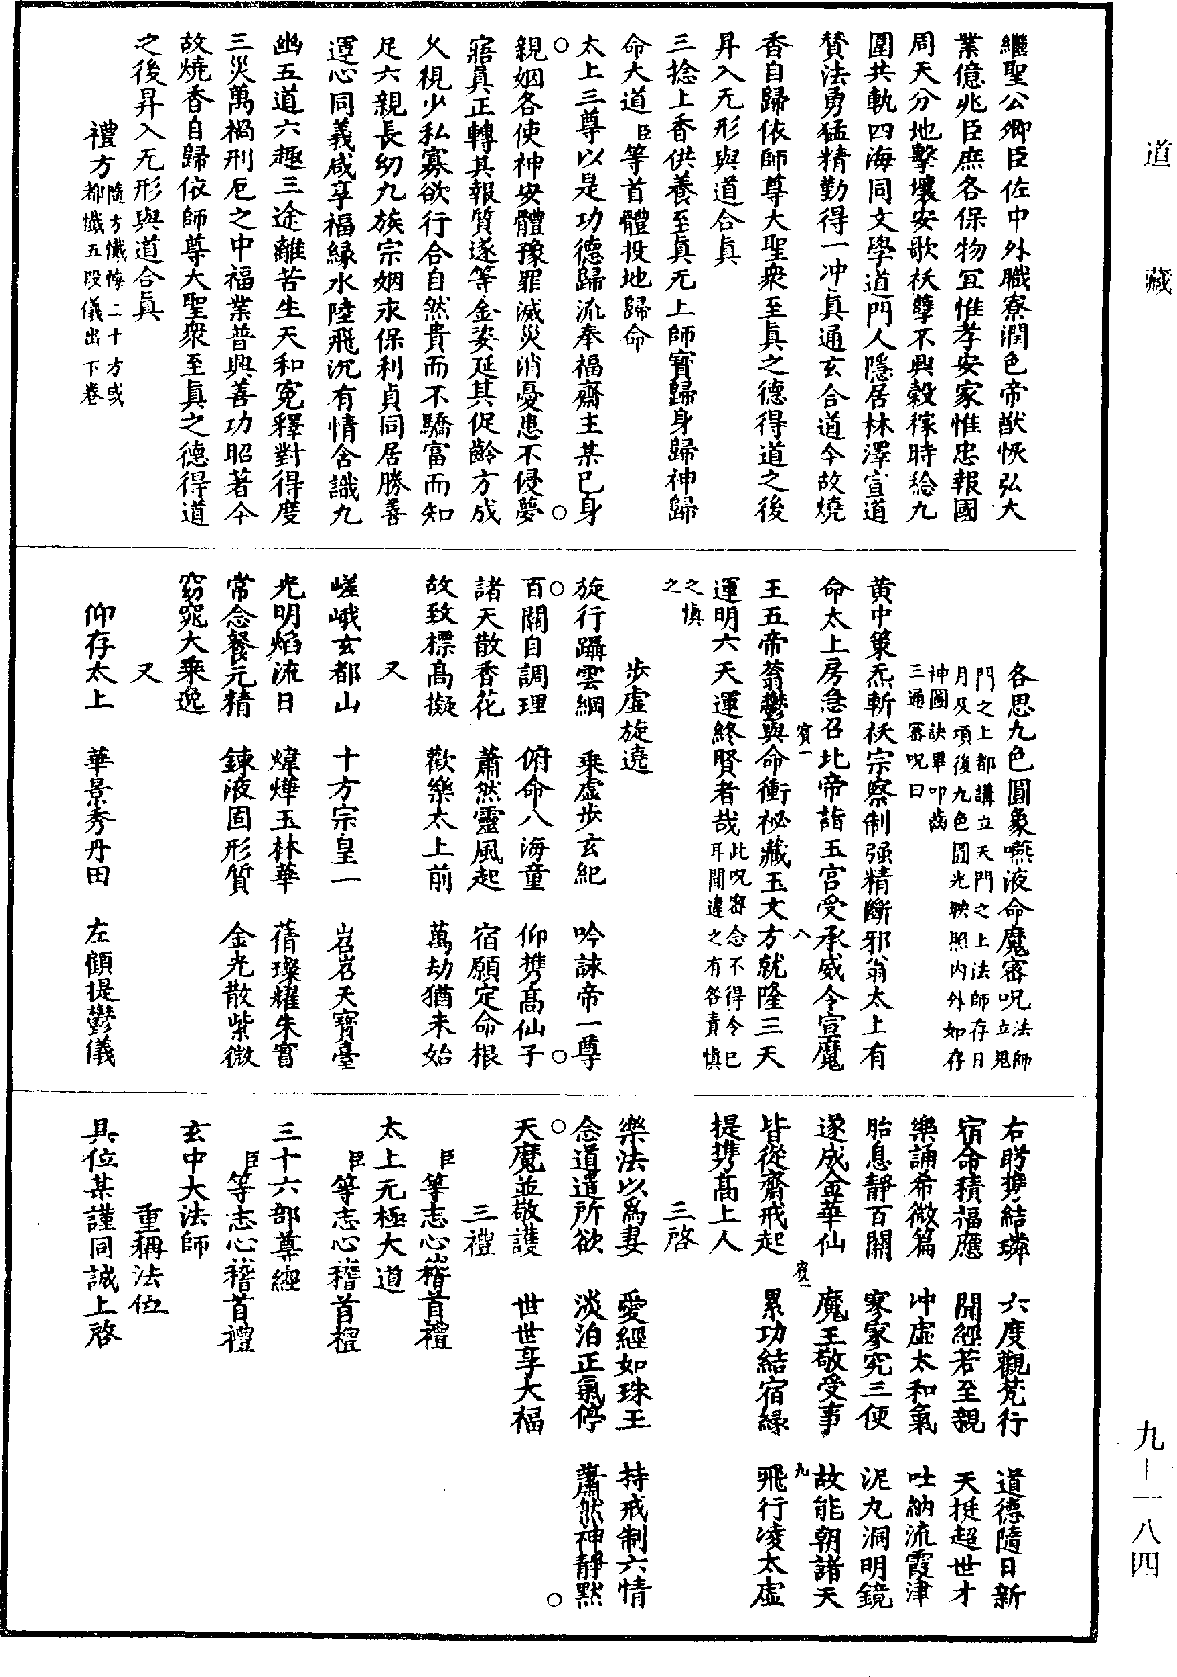 道藏
繼聖公卿臣佐中外職寮潤色帝猷恢弘大
業億兆臣庶各保物宜惟孝安家惟忠報國
周天分地擊壤安歌袄孽不興穀稼時稔九
圍共軌四海同文學道門人隱居林澤宣道
贊法勇猛精勤得一冲真通玄合道今故燒
香自歸依師尊大聖衆至真之德得道之後
昇入无形與道合真
三捻上香供養至真无上師寳歸身歸神歸
命大道臣等首體投地歸命
太上三尊以是功德歸流奉福齋主某己身
親姻各使神安體豫罪滅災消憂患不侵夢
寤真正轉其報質遂等金姿延其促齡方成
久視少私寡欲行合自然貴而不驕富而知
足六親長幼九族宗姻永保利貞同居勝善
運心同義咸享福緣水陸飛沉有情含識九
幽五道六趣三途離苦生天和寃釋對得度
三災萬禍刑厄之中福業普興善功昭著今
故燒香自歸依師尊大聖衆至真之德得道
之後昇入无形與道合真
禮方隨方懺悔二十方或都懺五段儀出下卷
各思九色圓象嚥液命魔密呪法師立鬼
門之上都講立天門之上法師存日
月及項後九色圓光映照内外如存
神圖訣畢叩齒
三通密呪曰
黄中策炁斬袄宗察制强精斷邪翁太上有
命太上房急召北帝詣玉宫受承威令宣魔
王五帝蓊鬱與命衝祕藏玉文方就隆三天
運明六天運終賢者哉此呪密念不得令己耳聞違之有咎責慎
之慎
之
步虚旋遶
旋行躡雲綱 乘虚步玄紀 吟詠帝一尊
百關自調理 俯命八海童 仰携高仙子
諸天散香花 蕭然靈風起 宿願定命根
故致標高擬 歡樂太上前 萬劫猶未始
又
嵯峨玄都山 十方宗皇一 岧岧天寳臺
光明焰流日 煒燁玉林華 蒨璨耀朱實
常念餐元精 錬液固形質 金光散紫微
窈窕大乘逸
又
仰存太上 華景秀丹田 左顧提鬱儀
右盻携結璘 六度觀梵行 道德隨日新
宿命積福應 聞經若至親 天挺超世才
樂誦希微篇 冲虚太和氣 吐納流霞津
胎息靜百關 寥寥究三便 泥丸洞明鏡
遂成金華仙 魔王敬受事 故能朝諸天
皆從齋戒起 累功結宿緣 飛行凌太虚
提携高上人
三啓
樂法以爲妻 愛經如珠玉 持戒制六情
念道遣所欲 淡泊正氣停 蕭然神靜黙
天魔並敬護 世世享大福
三禮
臣等志心稽首禮
太上无極大道
臣等志心稽首禮
三十六部尊經
臣等志心稽首禮
玄中大法師
重稱法位
具位某謹同誠上啓
九－一八四